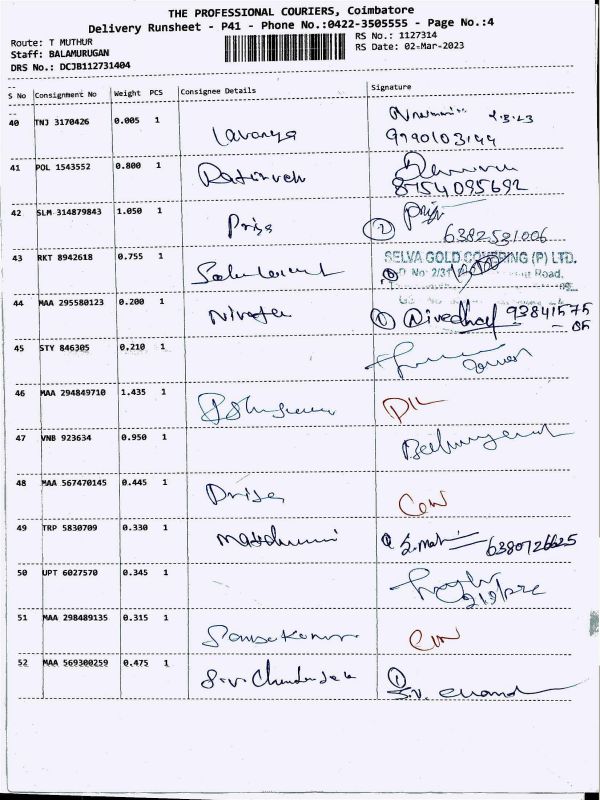 THE PROFESSIONAL COURIERS, Coimbatore
Delivery Runsheet - P41 - Phone No.:0422-3505555 - Page No.:4
Route: T MUTHUR
RS No.: 1127314
Staff: BALAMURUGAN
RS Date: 02-Mar-2023
DRS No.: DCJB112731404
S No Consignment No Weight PCS Consignee Details Signature
40 TNJ 3170426 0.005 1 Lavanya
9790103144
41 POL 1543552 0.800 1
8754095692
42 SLM 314879843 1.050 1 Priya 2 Priya
6382521006
43 RKT 8942618 0.755 1 SELVA GOLD COVERING (P) LTD.
No: 2/31 Road,
44 MAA 295580123 0.200 1 Nivetha 1 Nivedha 93841575
05
45 STY 846305 0.210 1
46 MAA 294849710 1.435 1 DIL
47 VNB 923634 0.950 1
48 MAA 567470145 0.445 1 Priya
49 TRP 5830709 0.330 1 S. Mah 6380726625
50 UPT 6027570 0.345 1
51 MAA 298489135 0.315 1
52 MAA 569300259 0.475 1 S.V. 1
S.V. Chand